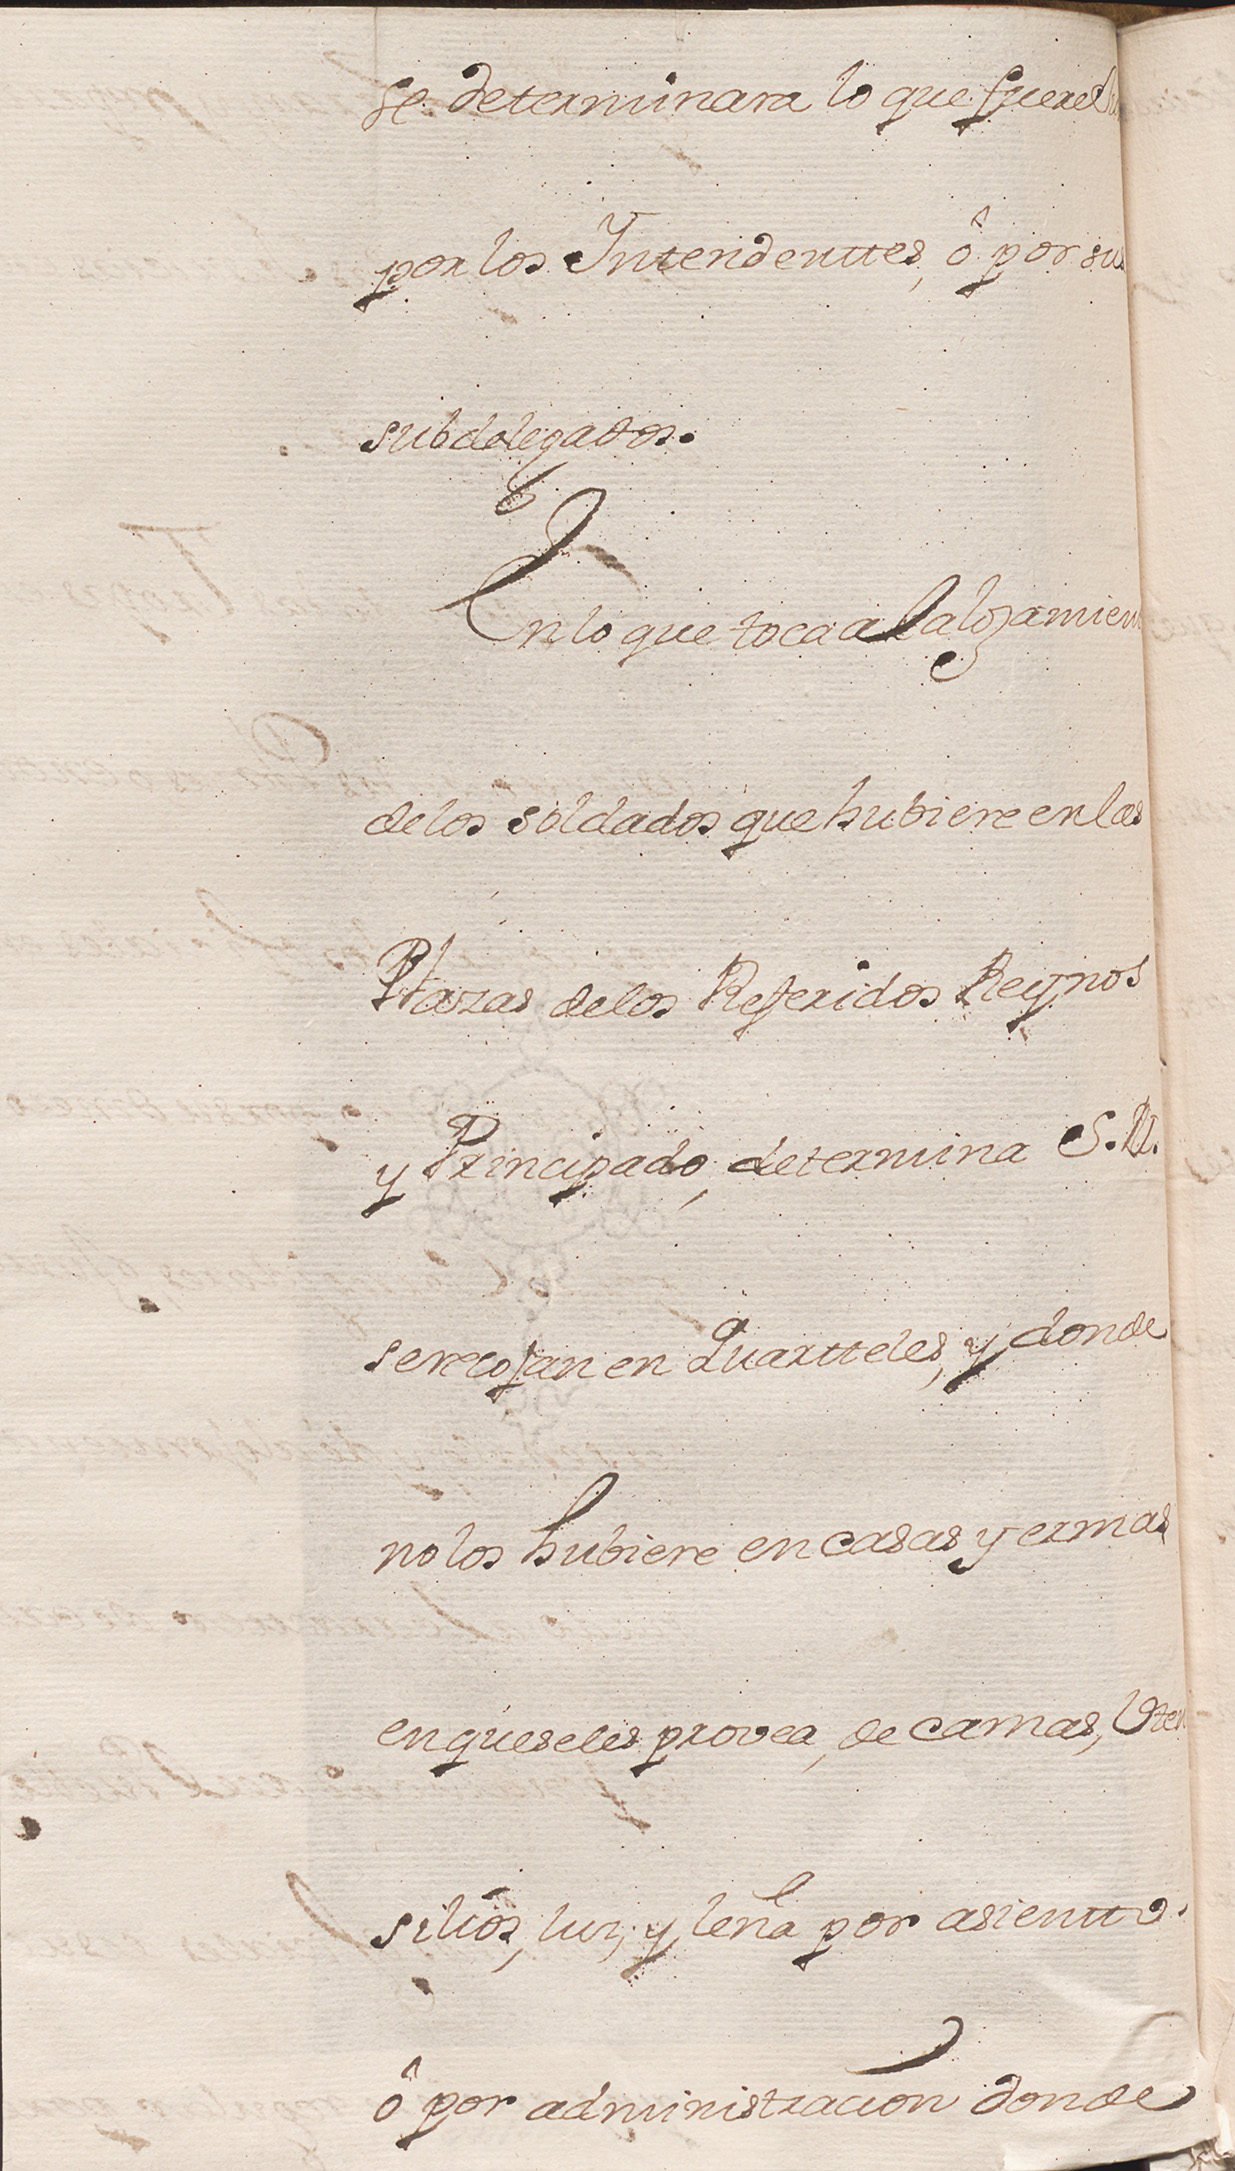 se determinara lo que fuere
por los Intendenttes, ô por sus
subdelegados.
En lo que toca al alojamien
de los soldados que hubiere en las
Plazas de los Referidos Reynos
y Principado, determina S. M.
se recojan en Quartteles, y donde
no los hubiere en casas yermas
en que se les provea, de camas, Vten
silios, luz, y leña por asientto.
ô por administracion donde